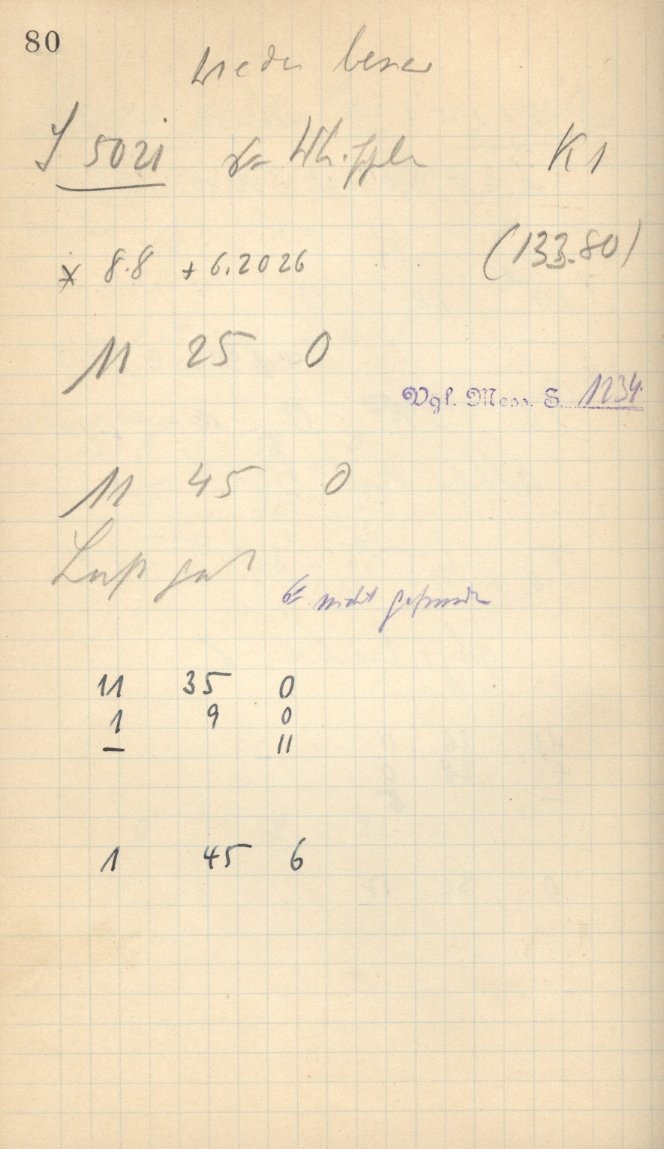 80
wieder besser
S 5021 Whipple K1
* 8.8 + 6.2026 (133.80)
11 25 0
Vgl. Mess. S. 1234
11 45 0
Luft gut
nicht gefunden
11 35 0
1 9 0
– 11
1 45 6